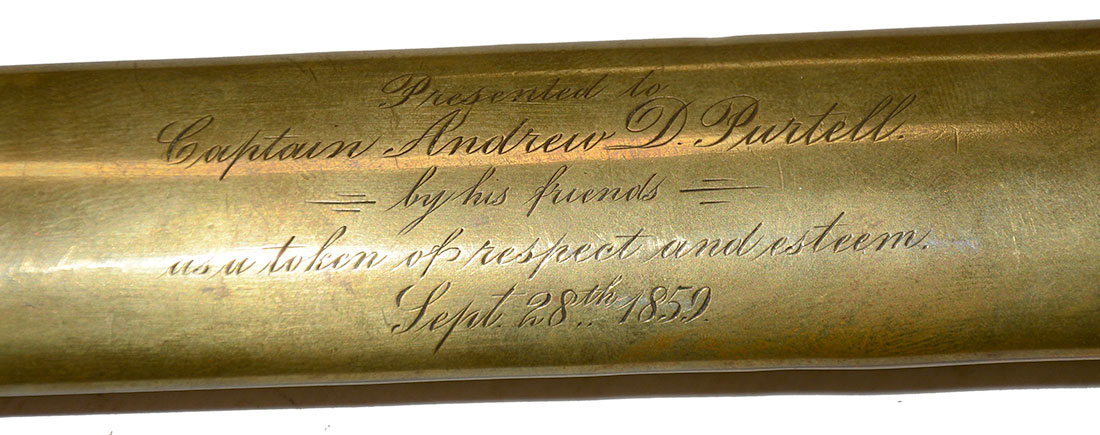 Presented to
Captain Andrew D. Purtell.
by his friends
as a token of respect and esteem.
Sept. 28th 1859.